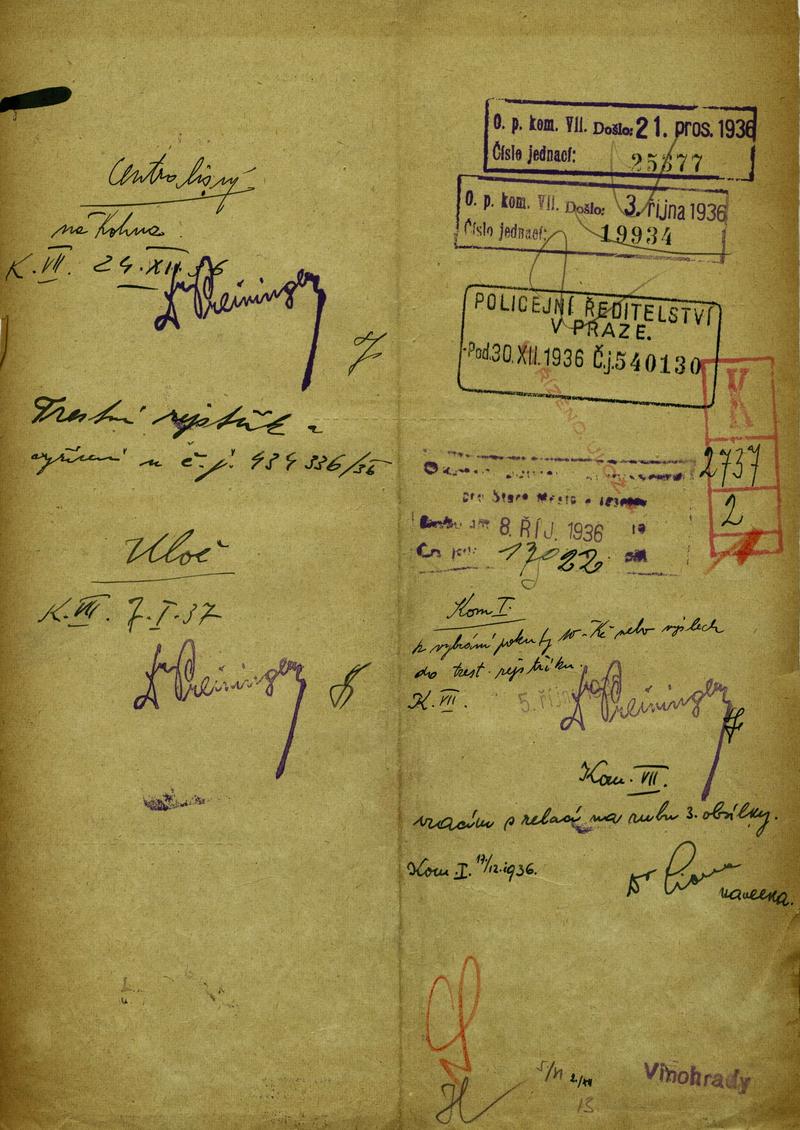 na Kohna.
K. VII. 24. XII. 36
Dr Preininger
Trestní rejstřík -
vyřízení u č. j. 434 336/36
Ulož
K. VII. 7. I. 37
Dr Preininger
O. p. kom. VII. Došlo: 21. pros. 1936
Číslo jednací: 25877
O. p. kom. VII. Došlo: 3. října 1936
Číslo jednací: 19934
POLICEJNÍ ŘEDITELSTVÍ
V PRAZE.
Pod. 30. XII. 1936 Č.j. 540130
K
2737
2
pro Staré Město
8. ŘÍJ. 1936
17022
Kom I.
k vybrání pokuty 10.- Kč nebo výslech
do trest. rejstříku.
K. VII.
5. října
Dr Preininger
Kom. VII.
vracím s relací na rubu 3. obsílky.
Kom I. 17/12. 1936.
Dr
Vinohrady
13